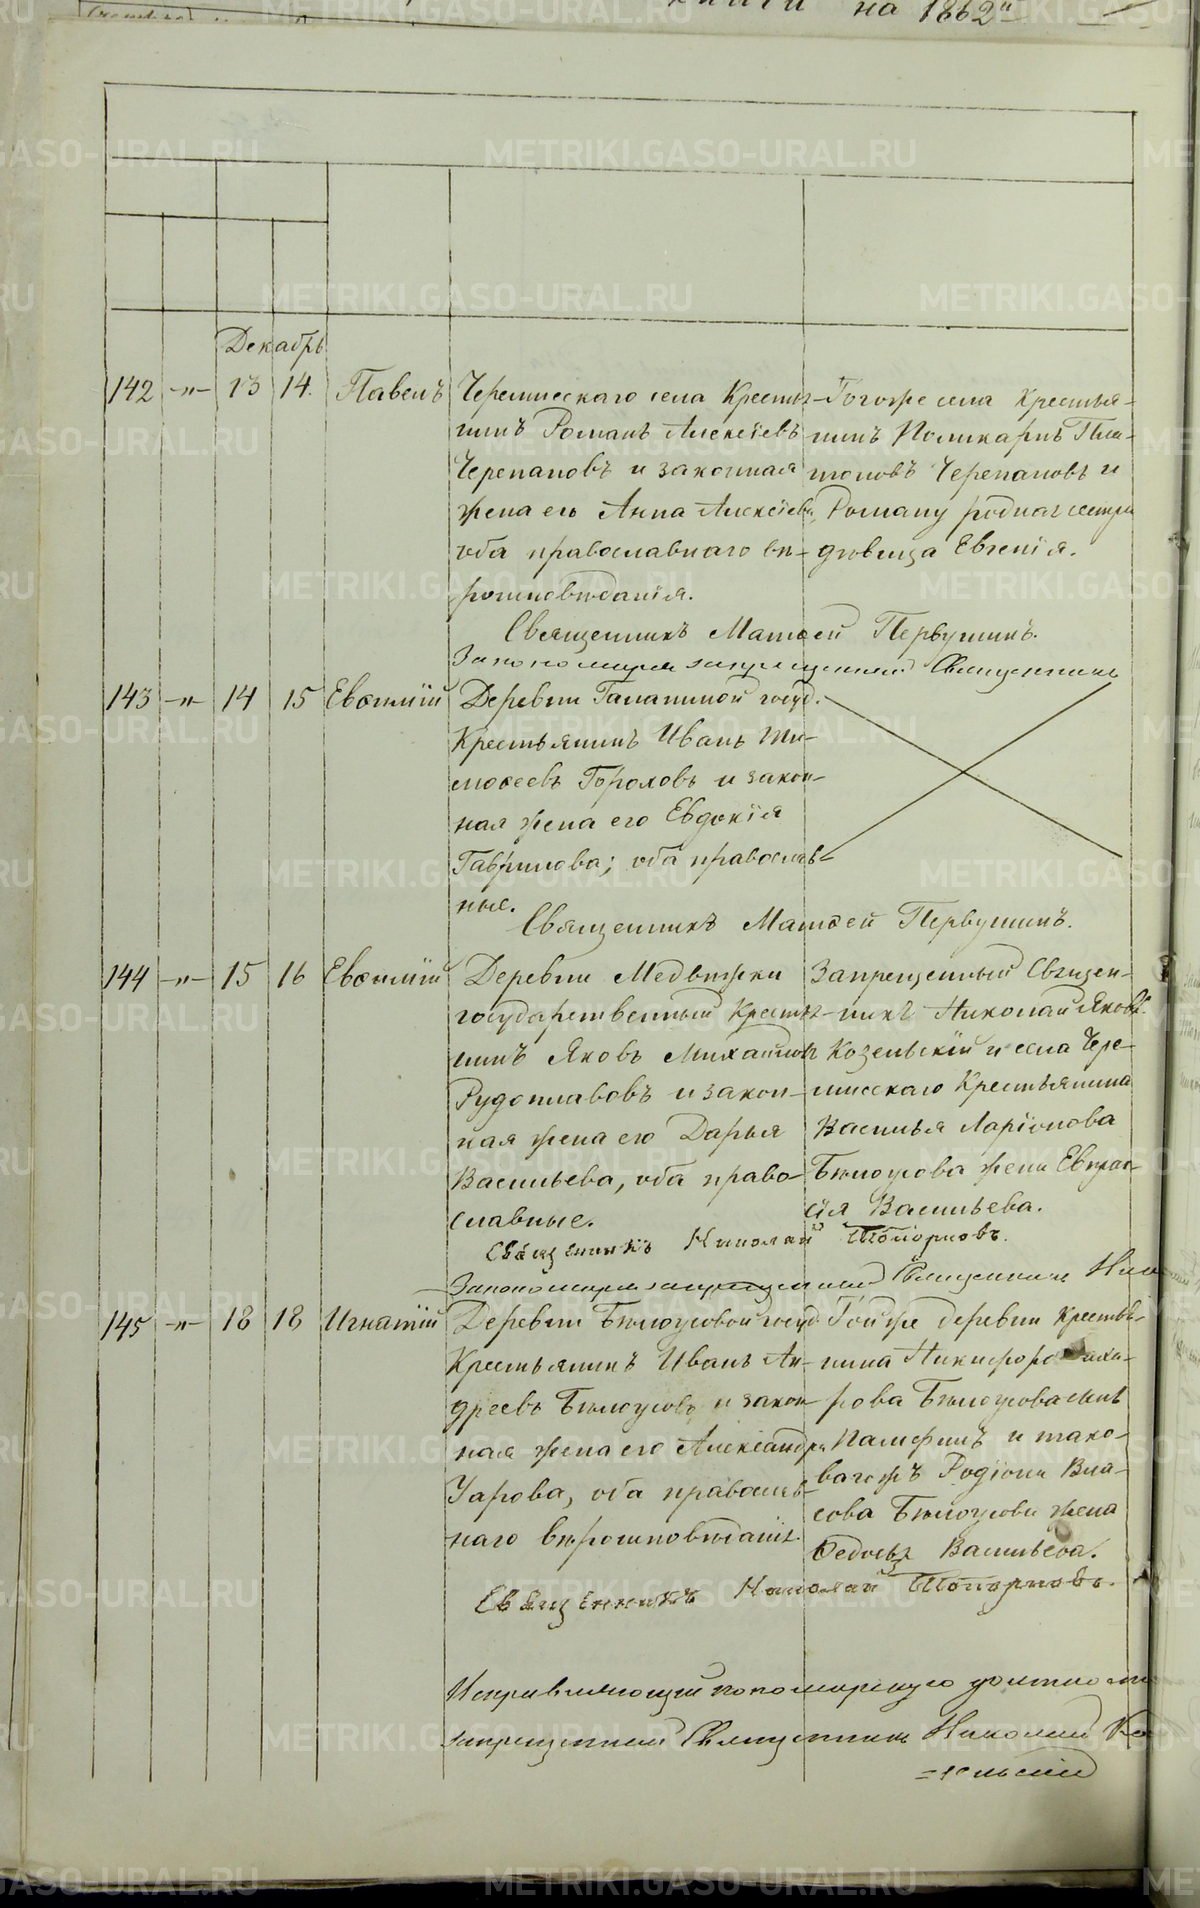 на 1862
Декабрь
142 -"- 13 14. Павелъ
Черемисскаго села Кресть-
нинъ Романъ Алексѣевъ
Черепановъ и законная
жена его Анна Алексѣева,
оба православнаго вѣ-
роисповѣданія.
Тогоже села Крестья-
нинъ Поликарпъ Пла-
тоновъ Черепановъ и
Роману родная сестра
дѣвица Евгенія.
Священникъ Матѳей Первушинъ.
запрещенный Священникъ
143 -"- 14 15 Евѳимій
Деревни Галаниной госуд.
Крестьянинъ Иванъ Ти-
моѳеевъ Гороховъ и закон-
ная жена его Евдокія
Гаврилова; оба православ-
ные.
Священникъ Матѳей Первушинъ.
144 -"- 15 16 Евѳимій
Деревни Медвѣжки
государственный Кресть-
нинъ Яковъ Михайловъ
Рудоплавовъ и закон-
ная жена его Дарья
Васильева, оба право-
славные.
Запрещенный Священ-
никъ Николай Яковл.
Козельскій и села Чере-
мисскаго Крестьянина
Василья Ларіонова
Бѣлоусова жена Евпрак-
сія Васильева.
Священникъ Николай Топорковъ.
запрещенный Священникъ Ник
145 -"- 18 18 Игнатій
Деревни Бѣлоусовой госуд.
Крестьянинъ Иванъ Ан-
дреевъ Бѣлоусовъ и закон-
ная жена его Александра
Уарова, оба православ-
наго вѣроисповѣданія.
Тойже деревни Крестья-
нина Никифора
рова Бѣлоусова сынъ
Памфилъ и тако-
вагожъ Родіона Вла-
сова Бѣлоусова жена
Ѳедосья Васильева.
Священникъ Николай Топорковъ.
Исправляющій пономарскую должность
запрещенный Священникъ Николай Ко
=зельскій
METRIKI.GASO-URAL.RU